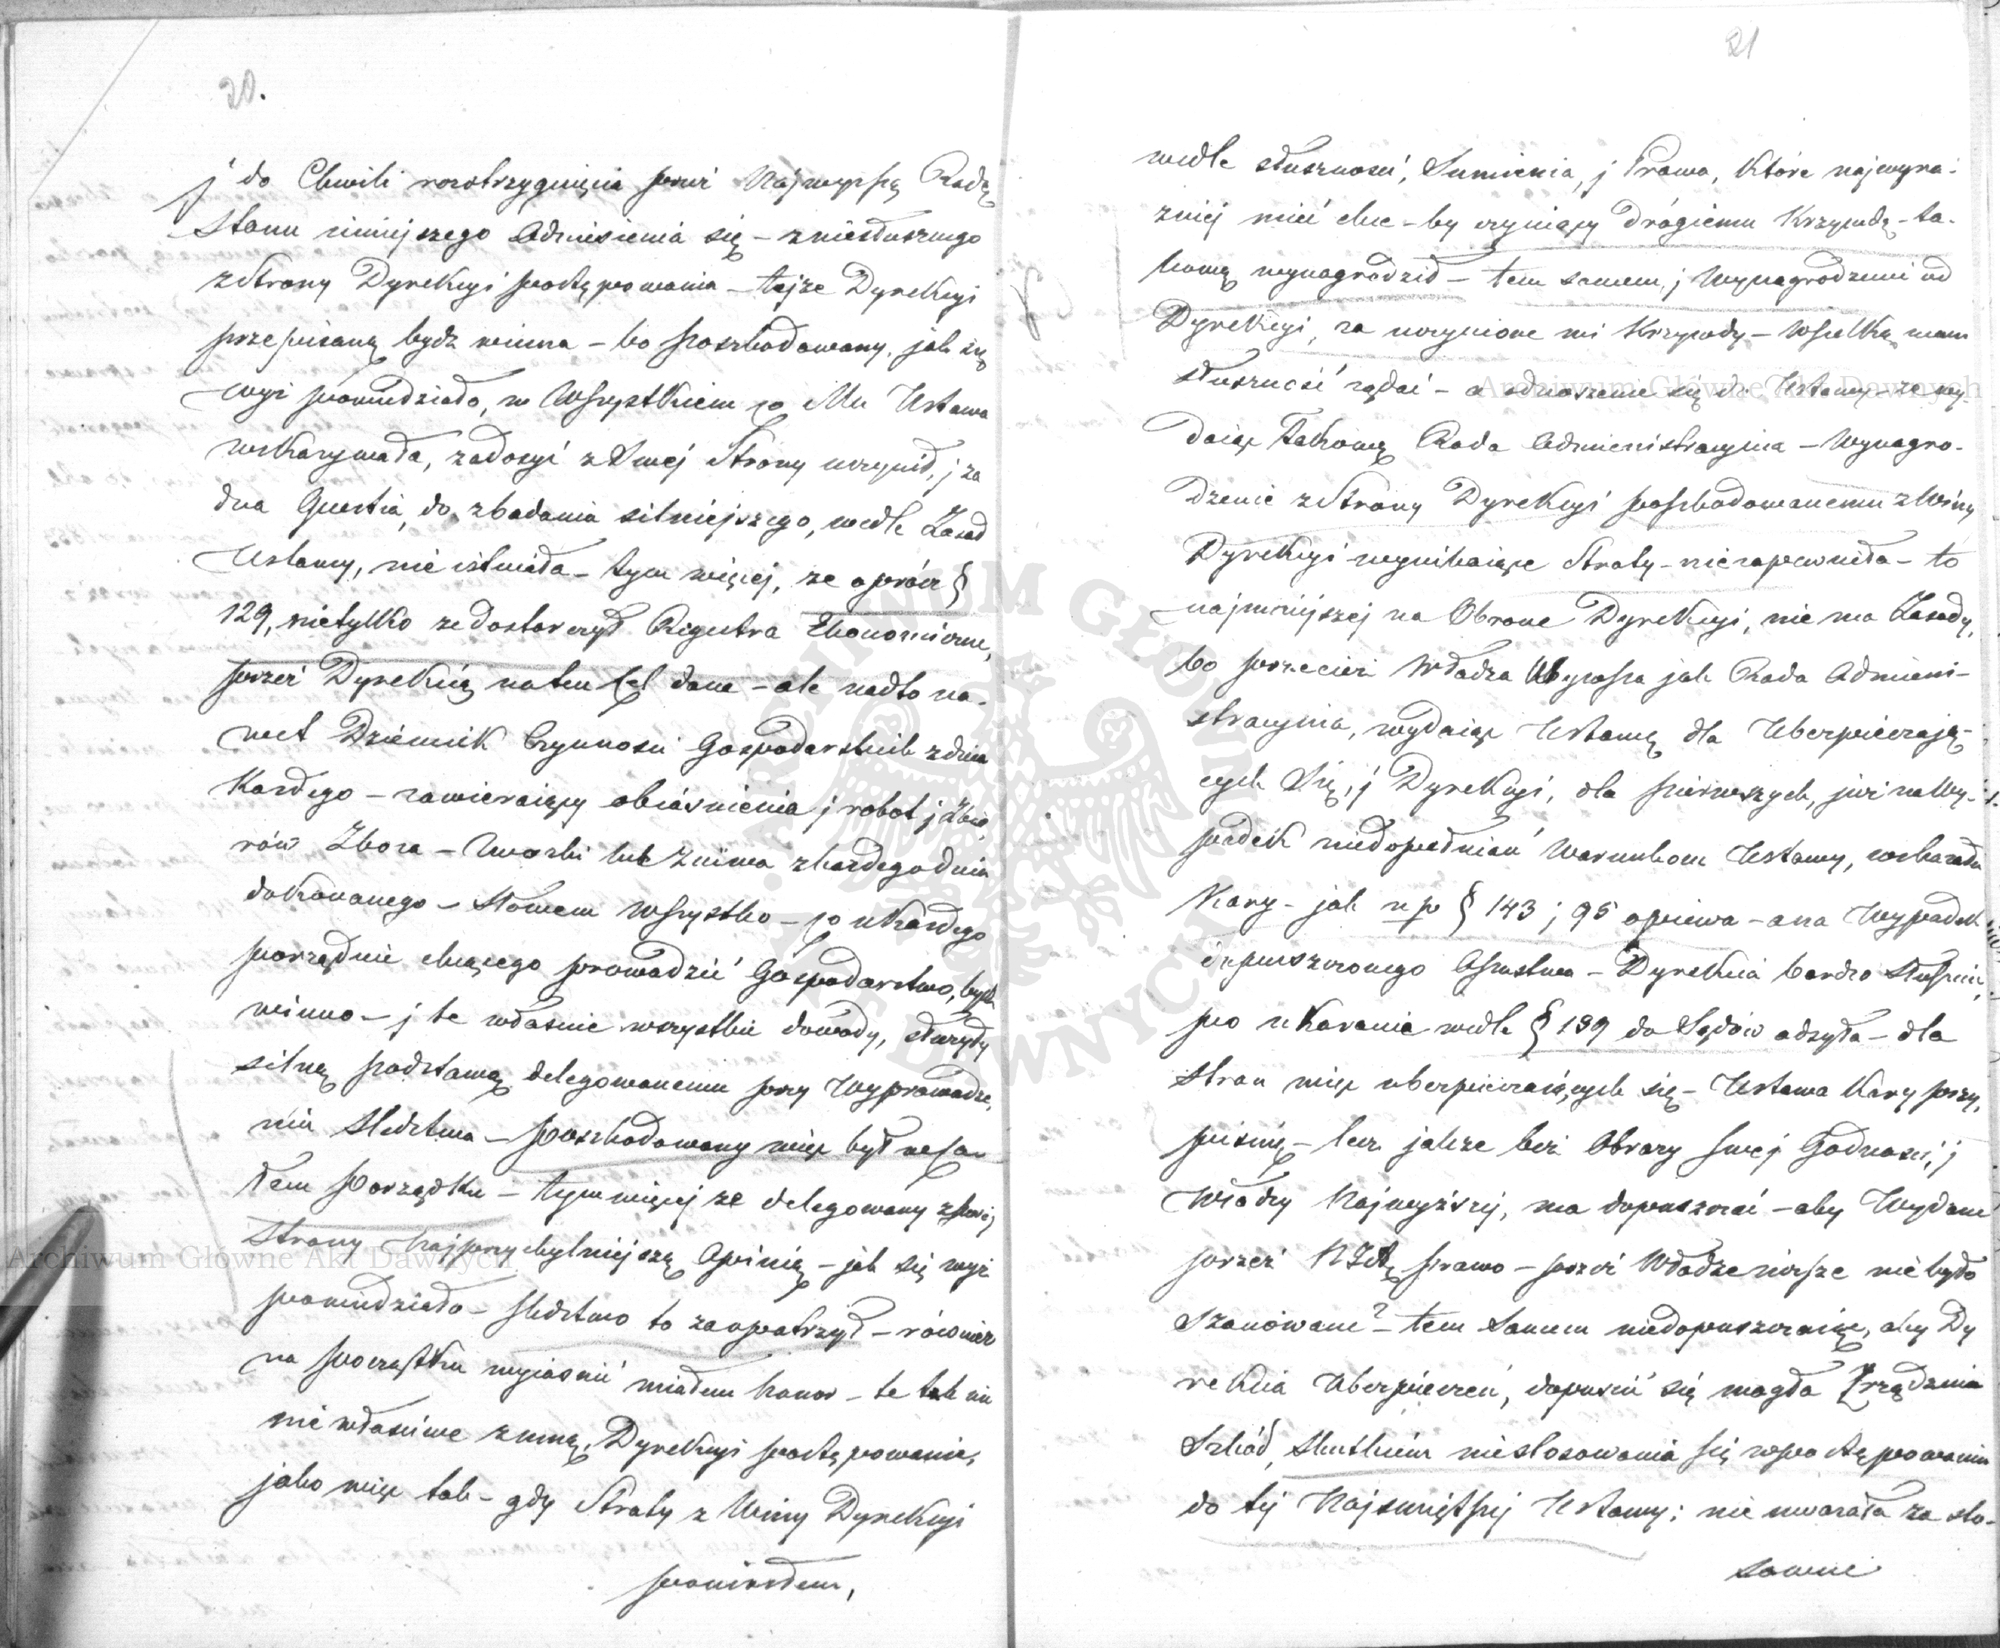 20.
j do Chwili rozstrzygnięcia przez Najwyższą Radę
Stanu niniejszego Odniesienia się – z niesłusznego
z Strony Dyrekcyi postępowania – tejże Dyrekcyi
przepisaną bydz winna – bo poszkodowany, jak się
wyż powiedziało, w Wszystkiem co Mu Ustawa
wskazywała, zadosyć z Swej Strony uczynił, j ża
dna Questia, do zbadania silniejszego, wedle Zasad
Ustawy, nie istniała – tym więcej, ze oprócz §
129, nietylko ze dostarczył Regestra Ekonomiczne,
przez Dyrekcią na ten Cel dane – ale nadto na-
wet Dziennik Czynnosci Gospodarskich z dnia
Kazdego – zawieraiący obiaśnienia j robot j Zbio
rów Zboza – Uwozki lub Zniwa z kazdego dnia
dokonanego – Słowem Wszystko – co u Kazdego
porządnie chcącego prowadzić Gospodarstwo, bydz
winno – j te własnie wszystkie dowody, służyły
silną podstawą delegowanemu przy Wyprowadze
niu Sledztwa – poszkodowany więc był w ca
łem porządku – tym więcej ze delegowany z swej
Strony najprzychylniejszą Opinią – jak się wyż
powiedziało – sledztwo to zaopatrzył – równiez
na początku wyiasnić miałem honor – te tak nie
nie własciwe z mną, Dyrekcyi postępowanie,
jako więc tak – gdy Straty z Winy Dyrekcyi
poniosłem,
21
wedle słusznosci, Sumienia, j Prawa, Które najwyra-
zniej mieć chce – by czyniący drógiemu Krzywdę – ta-
kową wynagrodził – tem samem, j Wynagrodzenie od
Dyrekcyi, za uczynione mi Krzywdy – Wszelką mam
słuszność rządać – a odnoszenie się do Ustawy – ze wy-
daiąc Takową Rada Administracyina – Wynagro-
dzenie z Strony Dyrekcyi poszkodowanemu z Winy
Dyrekcyi wynikaiące Straty – nie zapewniła – to
najmniejszej na Obrone Dyrekcyi, nie ma Zasady,
bo przecież Władza Wyzsza jak Rada Admini-
stracyina, wydaiąc Ustawę dla Ubezpieczają-
cych Się, j Dyrekcyi, dla pierwszych, już na Wy-
padek niedopełnień Warunkom Ustawy, wskazała
Kary – jak np § 143 j 95 opiewa – a na Wypadek
dopuszczonego Oszustwa – Dyrekcia bardzo słusznie,
po ukaranie wedle § 139 do Sądów odsyła – dla
stron więc ubezpieczaiących się – Ustawa Kary przy,
pisuię – lecz jakze bez Obrazy swej Godnosci, j
Władzy Najwyższej, ma dopuszczać – aby Wydane
przez Nią prawo – przez Władze nizsze nie było
szanowane? – tem Samem niedopuszczaiąc, aby Dy
rekcia Ubezpieczeń, dopuscić się mogła Zrządzenia
Szkód, skutkiem niestosowania się w postępowaniu
do tej Najswiętszej Ustawy; nie uwazała za sto-
sowne
Archiwum Główne Akt Dawnych
Archiwum Główne Akt Dawnych
ARCHIWUM GŁÓWNE AKT DAWNYCH